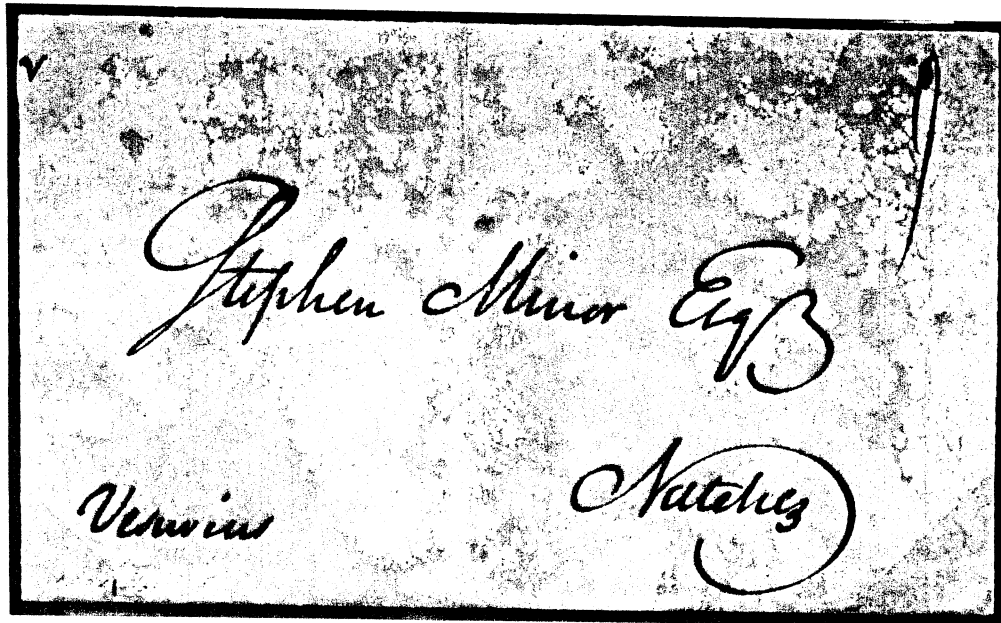 Stephen Minor Esqr
Natchez
Vesuvius